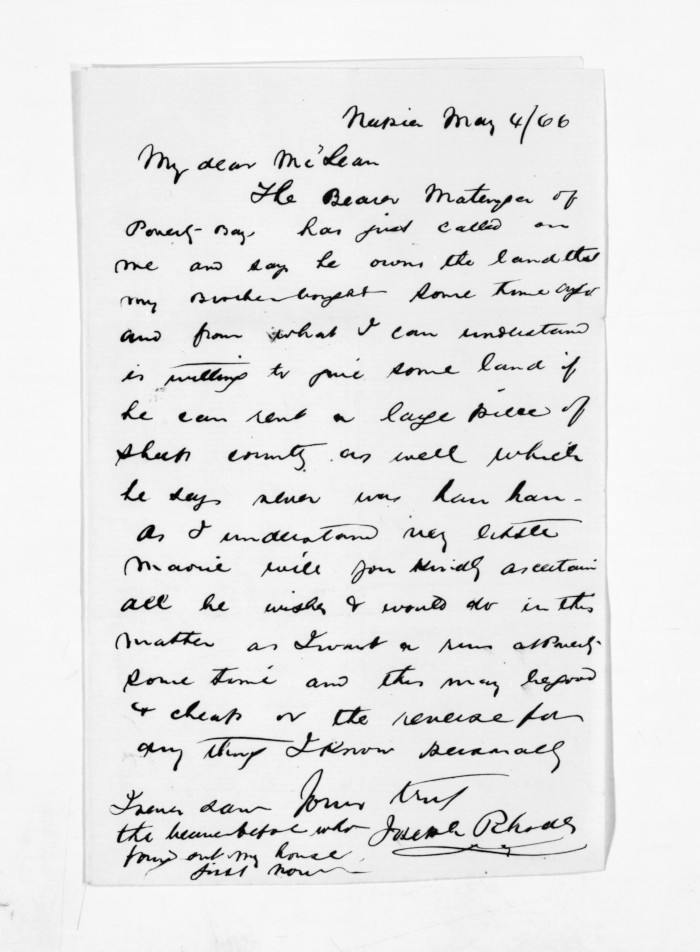 Napier May 4/66
My dear McLean
The Bearer of
Poverty-Bay has just called on
me and says he owns the land that
my Brother bought some time ago
and from what I can understand
is willing to give some land if
he can rent a large piece of
sheep country as well which
he says never was hau hau-
As I understand very little
Maorie will you kindly ascertain
all he wishes & would do in this
matter as I want a run at Poverty-
some time and this may be good
& cheap or the reverse for
any thing I know personally
Yours truly
Joseph Rhodes
I never saw
the bearer before who
found out my house
just now